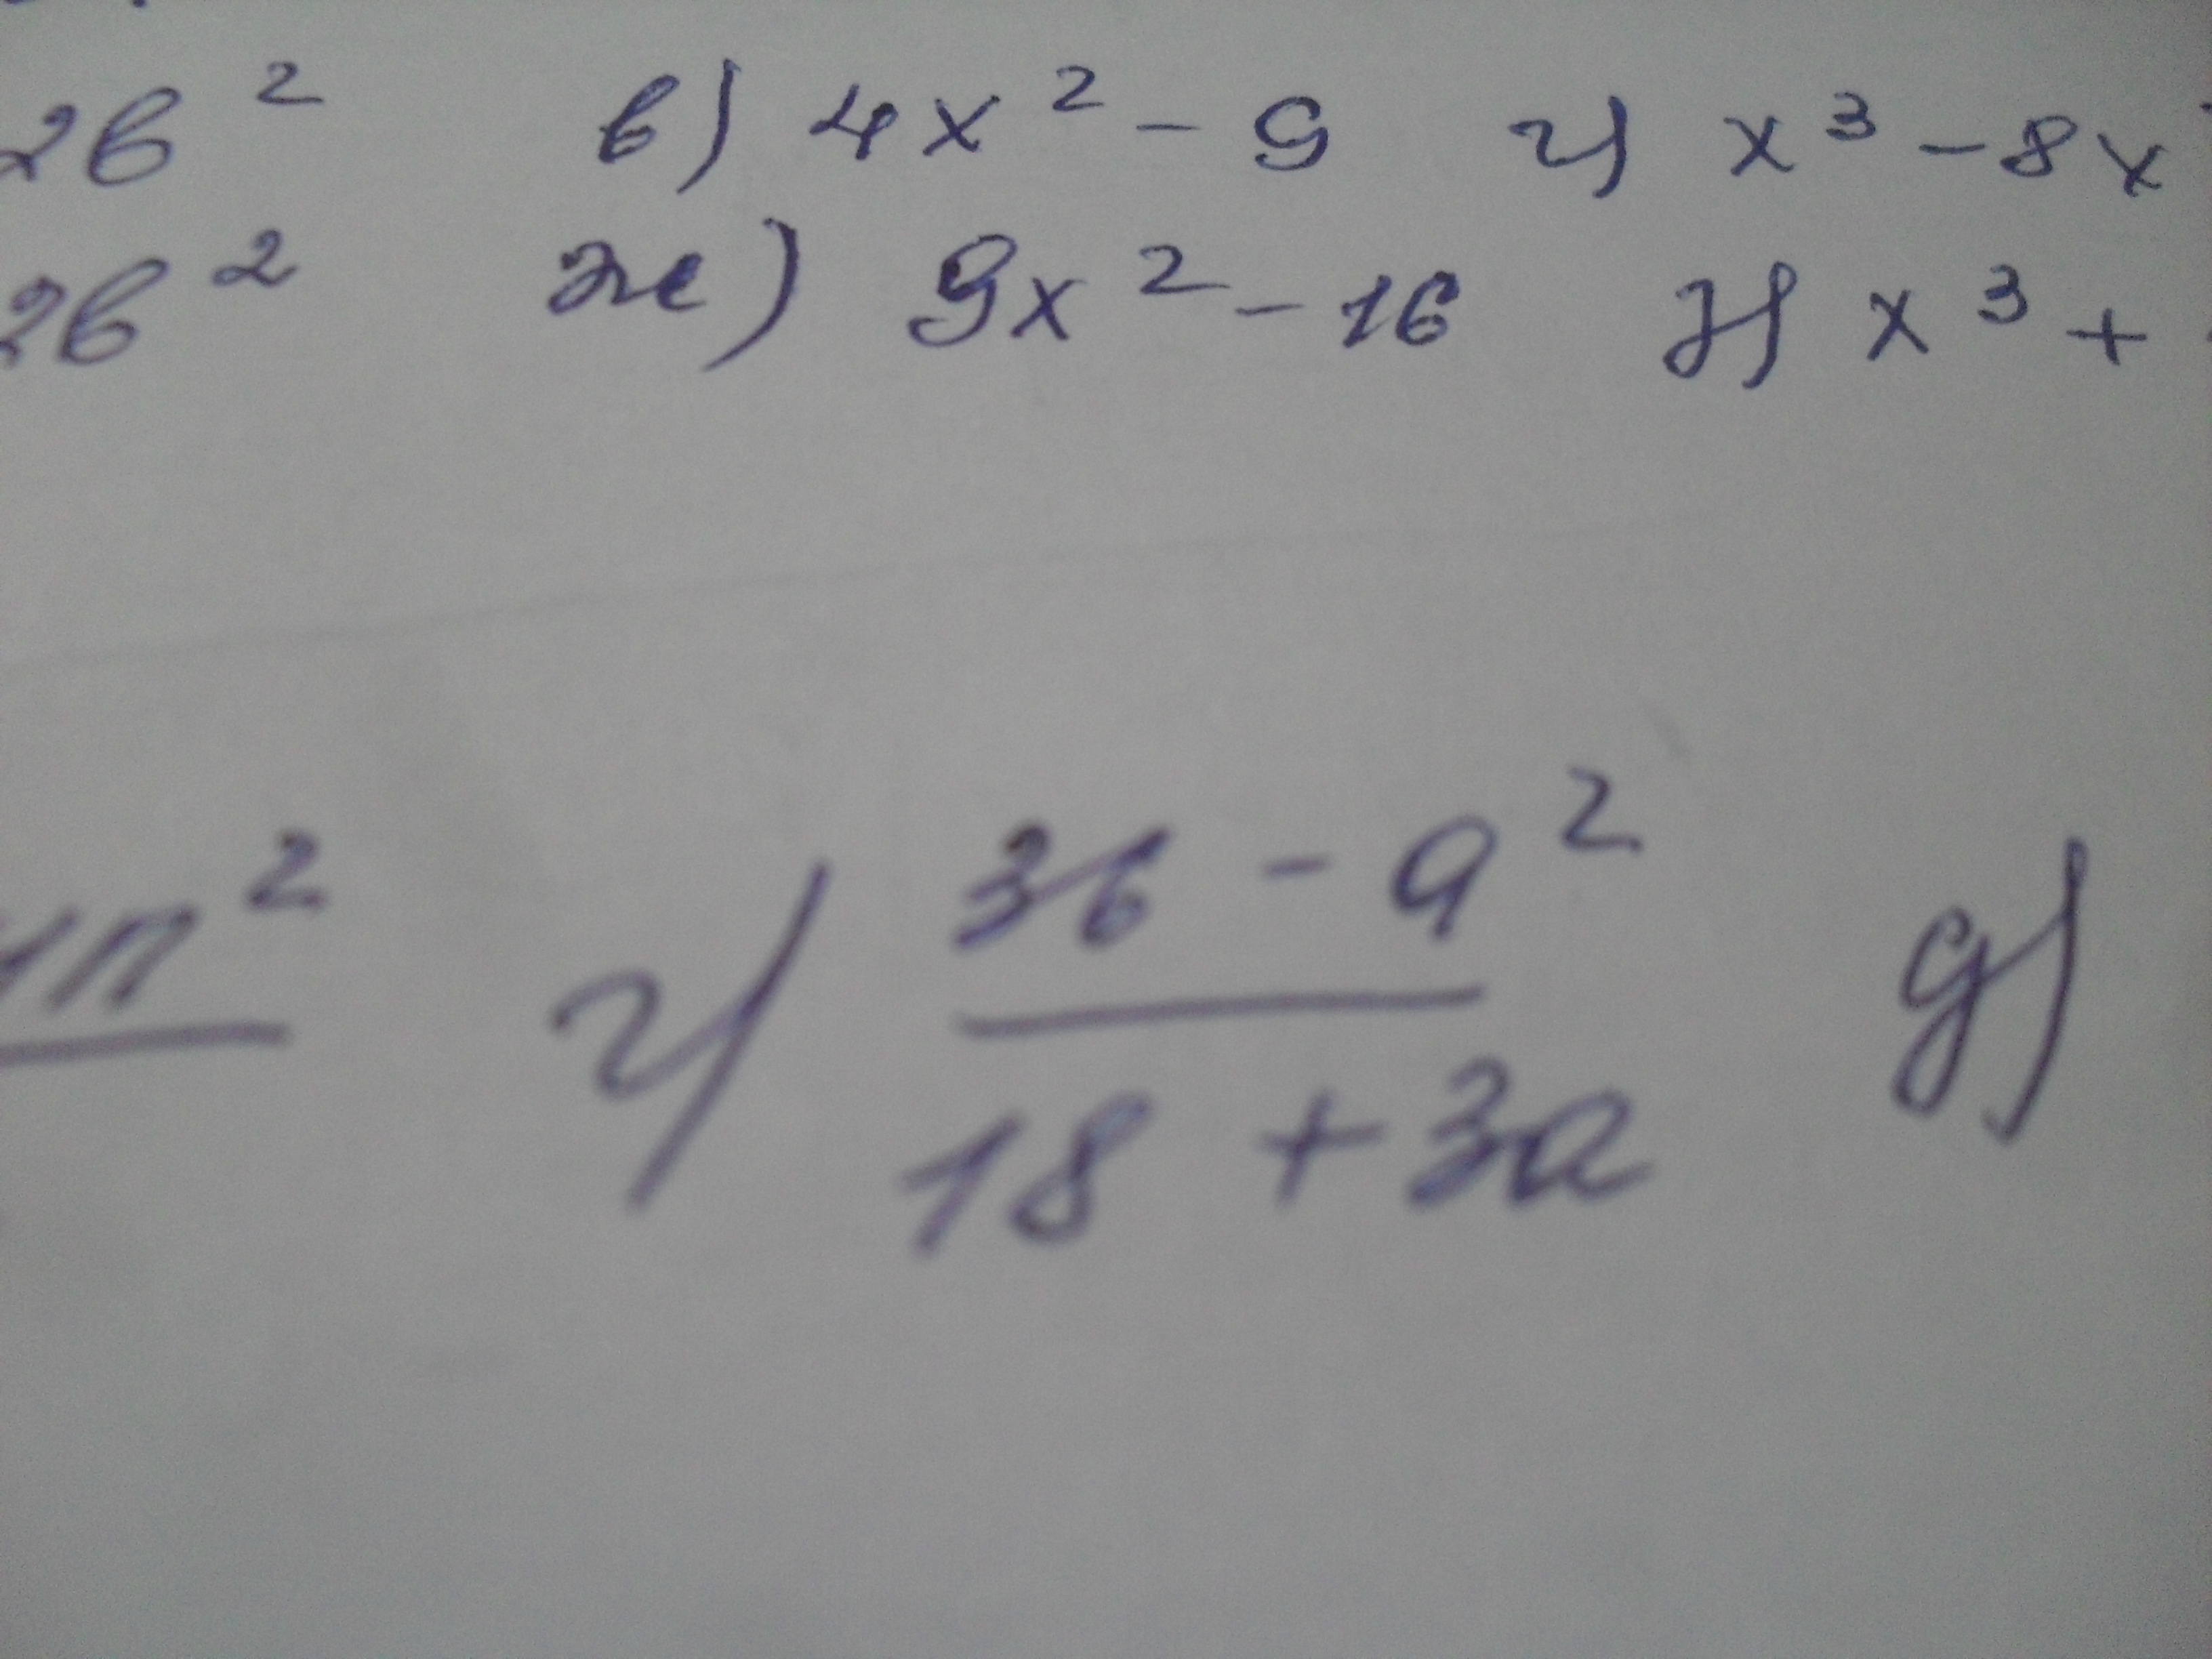 2b² в) 4x² - 9 г) x³ - 8x
2b² ж) 9x² - 16 з) x³ +
n² г) 36 - a² д)
18 + 3a